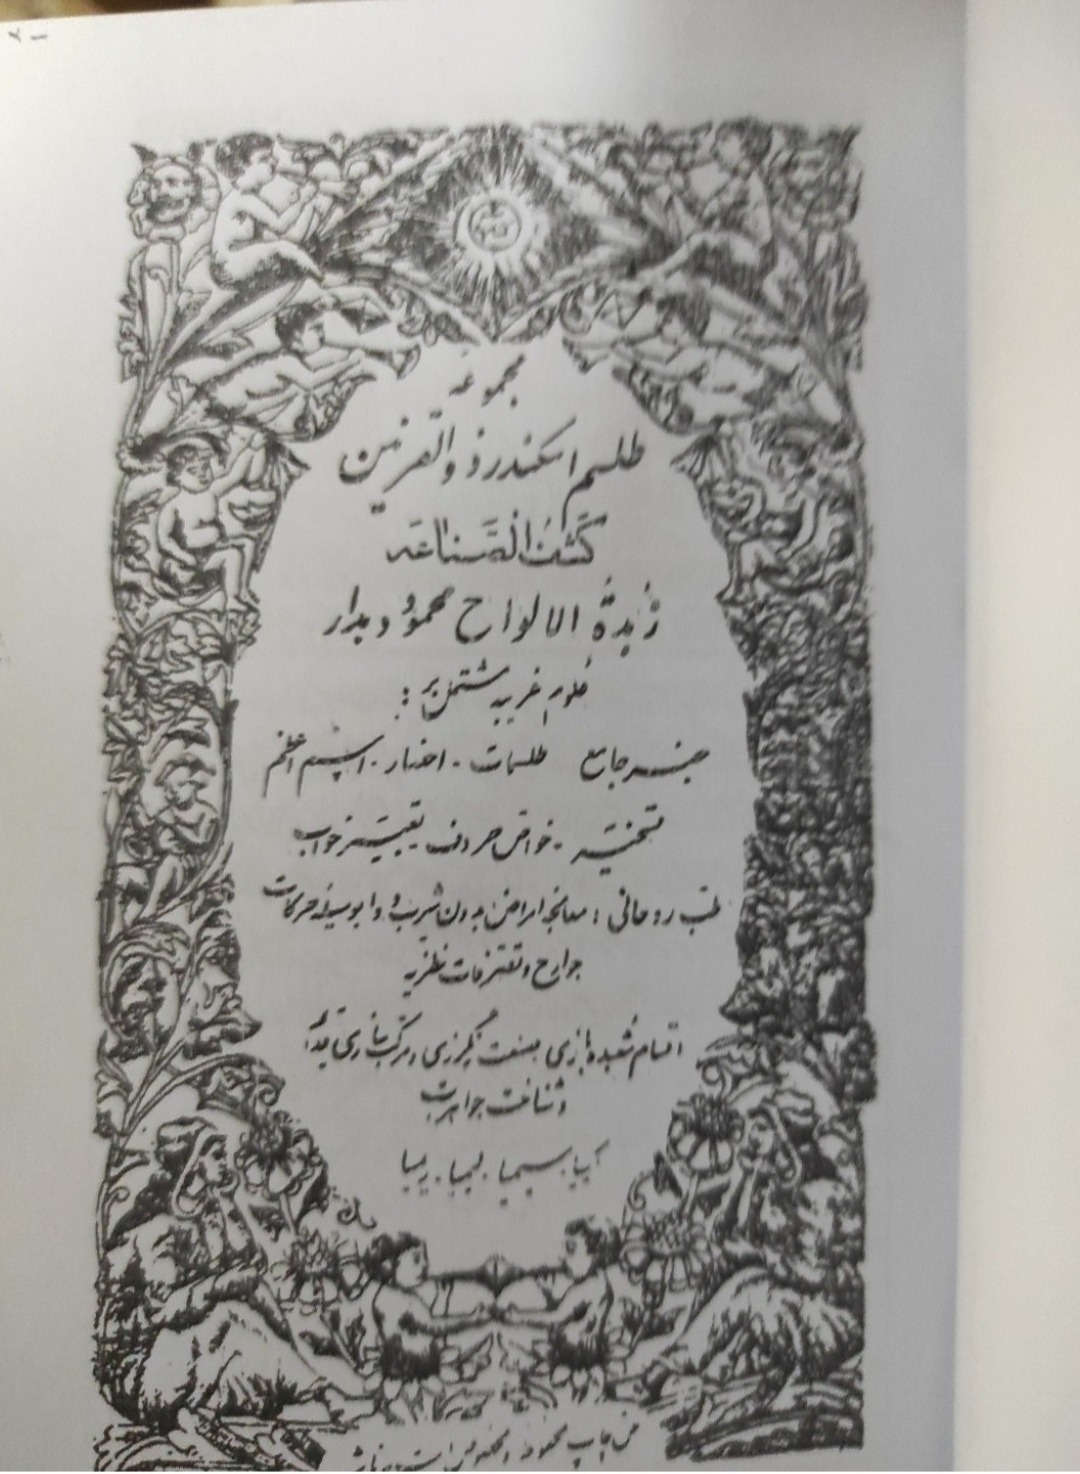 مجموعه
طلسم اسکندر ذوالقرنین
کشف الصناعه
زبدة الالواح محمود دیدار
علوم غریبه مشتمل بر:
جفر جامع طلسمات - احضار - اسم اعظم
تسخیر - خواص حروف تعبیر خواب
طب روحانی : معالجه امراض بدون شربت و دوا بوسیله حرکات
جوارح و تصرفات نظریه
اقسام شعبده بازی صنعت رنگرزی و مرکب سازی
و شناخت جواهرات
کیمیا - سیمیا - لیمیا - ریمیا
حق چاپ محفوظ و مخصوص است